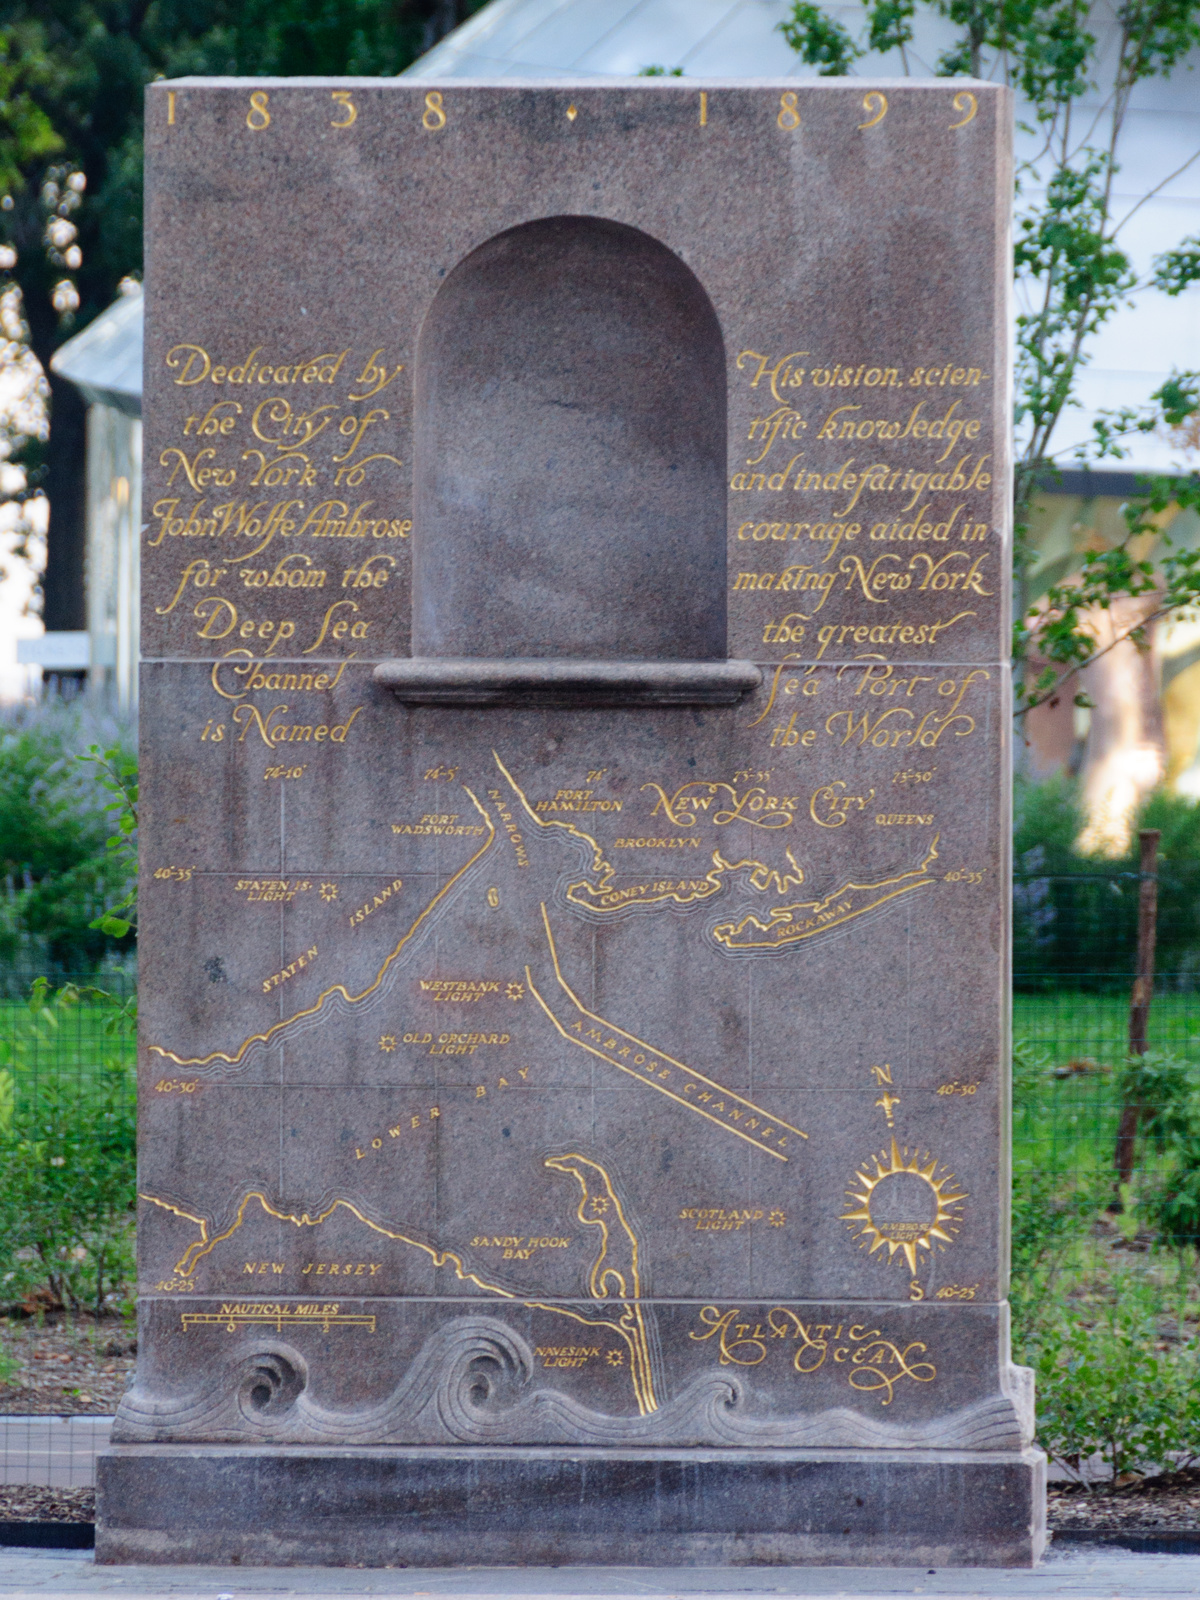 1838 ♦ 1899
Dedicated by
the City of
New York to
John Wolfe Ambrose
for whom the
Deep Sea
Channel
is Named
His vision, scien-
tific knowledge
and indefatigable
courage aided in
making New York
the greatest
Sea Port of
the World
74°-10'
74°-5'
74°
73°-55'
73°-50'
NARROWS
FORT
HAMILTON
NEW YORK CITY
FORT
WADSWORTH
BROOKLYN
QUEENS
40°-35'
40°-35'
STATEN IS.
LIGHT
STATEN ISLAND
CONEY ISLAND
ROCKAWAY
WESTBANK
LIGHT
OLD ORCHARD
LIGHT
AMBROSE CHANNEL
40°-30'
40°-30'
LOWER BAY
N
SCOTLAND
LIGHT
AMBROSE
LIGHT
SANDY HOOK
BAY
NEW JERSEY
40°-25'
S
40°-25'
NAUTICAL MILES
1 0 1 2 3
ATLANTIC
OCEAN
NAVESINK
LIGHT